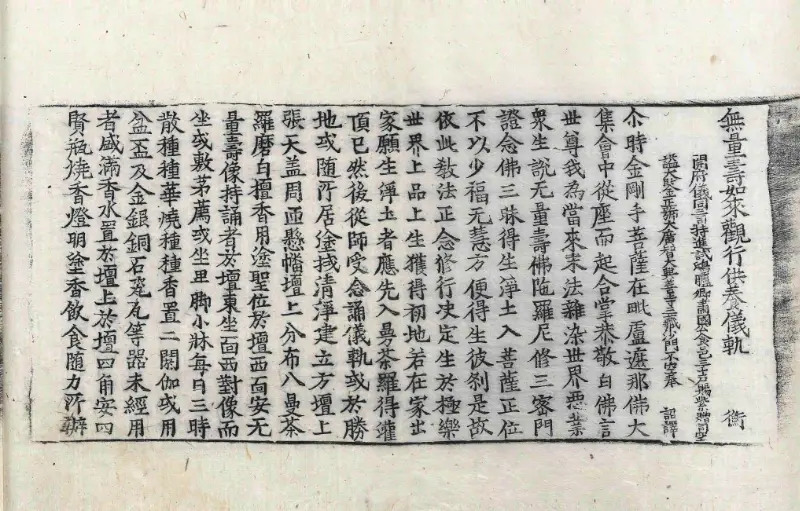 無量壽如來觀行供養儀軌 衡
開府儀同三司特進試鴻臚卿肅國公食邑三千戶賜紫贈司空
謚大鑒正號大廣智大興善寺三藏沙門不空奉 詔譯
尒時金剛手菩薩在毗盧遮那佛大
集會中從座而起合掌恭敬白佛言
世尊我為當來末法雜染世界惡業
衆生說无量壽佛陁羅尼修三密門
證念佛三昧得生淨土入菩薩正位
不以少福无慧方便得生彼刹是故
依此教法正念修行决定生於極樂
世界上品上生獲得初地若在家出
家願生淨土者應先入曼荼羅得灌
頂已然後從師受念誦儀軌或於勝
地或随所居塗拭清淨建立方壇上
張天盖周迊懸幡壇上分布八曼荼
羅磨白檀香用塗聖位於壇西面安无
量壽像持誦者於壇東坐面西對像而
坐或敷茅薦或坐卑脚小牀每日三時
散種種華燒種種香置二閼伽或用
盆盃及金銀銅石瓷瓦等器未經用
者盛滿香水置於壇上於壇四角安四
賢瓶燒香燈明塗香飲食随力所辦